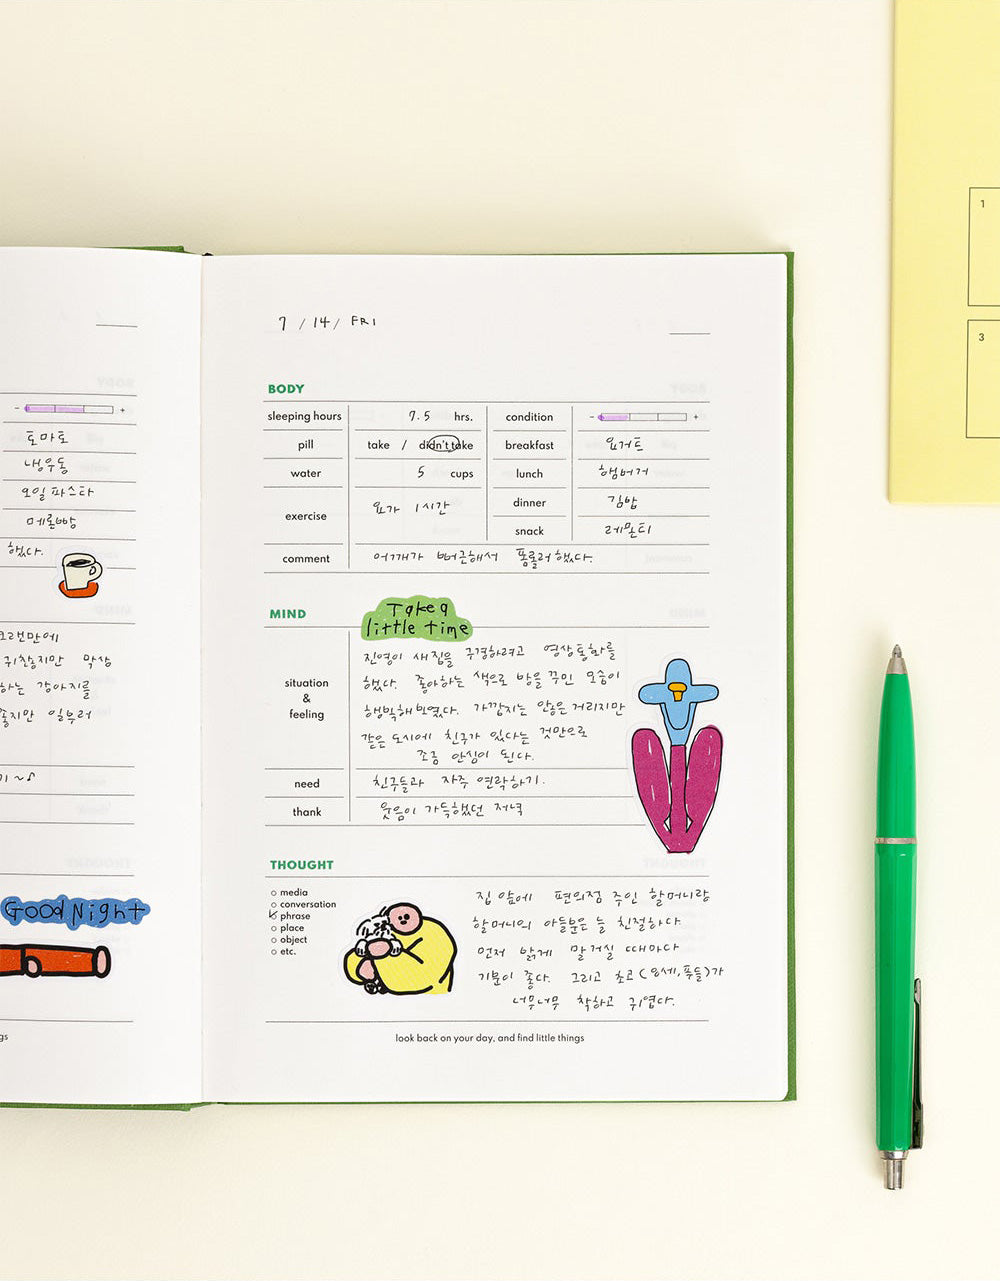 토마토
냉우동
오일 파스타
메론빵
했다.
오랜만에
귀찮지만 막상
하는 강아지를
좋지만 일부러
GOOD Night
gs
7 / 14 / FRI
BODY
sleeping hours 7.5 hrs. condition - +
pill take / didn't take breakfast 요거트
water 5 cups lunch 햄버거
exercise 요가 1시간 dinner 김밥
snack 레몬티
comment 어깨가 뻐근해서 폼롤러 했다.
MIND
Take a
little time
situation
&
feeling
진영이 새집을 구경하려고 영상통화를
했다. 좋아하는 색으로 방을 꾸민 모습이
행복해 보였다. 가깝지는 않은 거리지만
같은 도시에 친구가 있다는 것만으로
조금 안심이 된다.
need 친구들과 자주 연락하기.
thank 웃음이 가득했던 저녁
THOUGHT
media
conversation
phrase
place
object
etc.
집 앞에 편의점 주인 할머니랑
할머니의 아들분은 늘 친절하다
먼저 밝게 말 거실 때마다
기분이 좋다. 그리고 초코(요세,푸들)가
너무너무 착하고 귀엽다.
look back on your day, and find little things
1
3